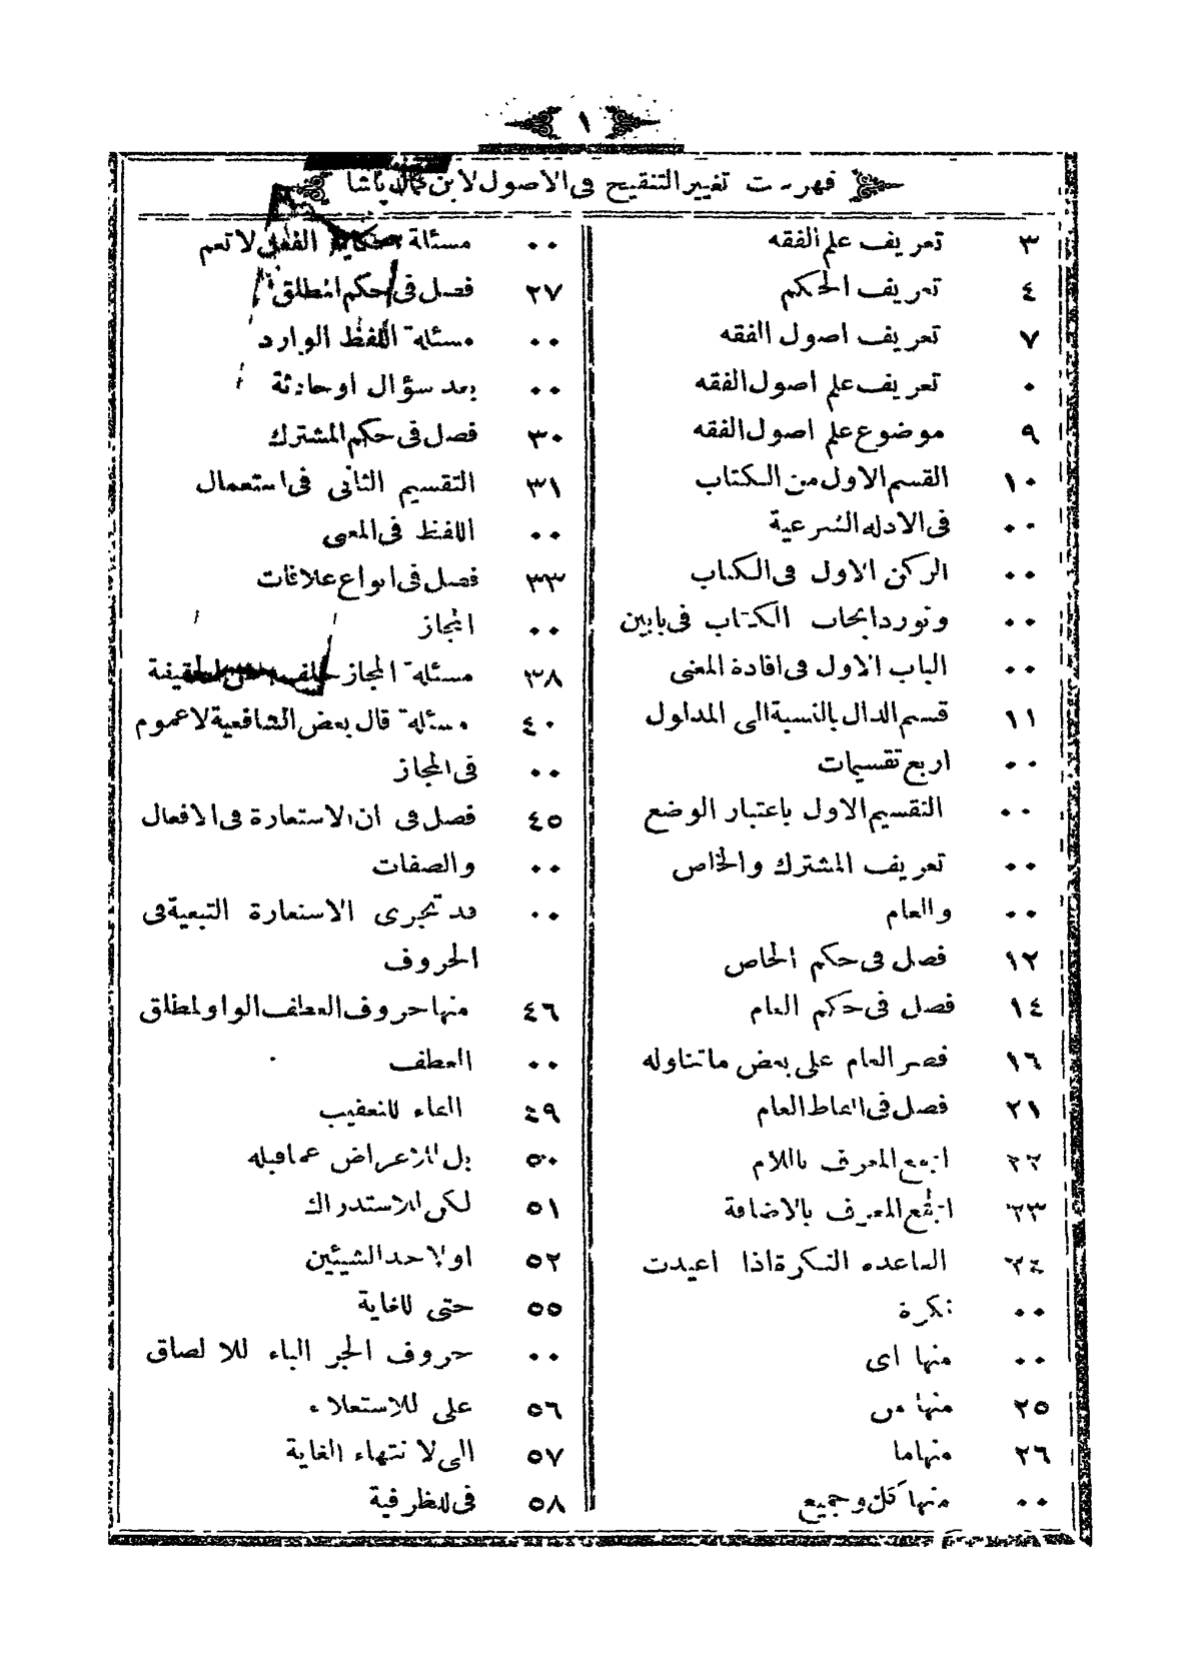 ١
فهرست تغيير التنقيح فى الاصول لابن كمال پاشا
٣ تعريف علم الفقه
٤ تعريف الحكم
٧ تعريف اصول الفقه
٠ تعريف علم اصول الفقه
٩ موضوع علم اصول الفقه
١٠ القسم الاول من الكتاب
٠٠ فى الادله الشرعية
٠٠ الركن الاول فى الكتاب
٠٠ ونورد ابحاث الكتاب فى بابين
٠٠ الباب الاول فى افادة المعنى
١١ قسم الدال بالنسبة الى المدلول
٠٠ اربع تقسيمات
٠٠ التقسيم الاول باعتبار الوضع
٠٠ تعريف المشترك والخاص
٠٠ والعام
١٢ فصل فى حكم الخاص
١٤ فصل فى حكم العام
١٦ قصر العام على بعض ماتناوله
٢١ فصل فى الفاظ العام
٢٢ الجمع المعرف باللام
٢٣ الجمع المعرف بالاضافة
٢٤ القاعده النكرة اذا اعيدت
٠٠ نكرة
٠٠ منها اى
٢٥ منها من
٢٦ منها ما
٠٠ منها كل وجميع
٠٠ مسئلة حكاية الفعل لا تعم
٢٧ فصل فى حكم المطلق
٠٠ مسئلة اللفظ الوارد
٠٠ بعد سؤال او حادثة
٣٠ فصل فى حكم المشترك
٣١ التقسيم الثانى فى استعمال
٠٠ اللفظ فى المعنى
٣٣ فصل فى انواع علاقات
٠٠ المجاز
٣٨ مسئلة المجاز خلف عن الحقيقة
٤٠ مسئلة قال بعض الشافعية لا عموم
٠٠ فى المجاز
٤٥ فصل فى ان الاستعارة فى الافعال
٠٠ والصفات
٠٠ قد تجرى الاستعارة التبعية فى
الحروف
٤٦ منها حروف العطف الواو لمطلق
٠٠ العطف
٤٩ الفاء للتعقيب
٥٠ بل للاعراض عما قبله
٥١ لكن للاستدراك
٥٢ او لاحد الشيئين
٥٥ حتى للغاية
٠٠ حروف الجر الباء للالصاق
٥٦ على للاستعلاء
٥٧ الى لانتهاء الغاية
٥٨ فى للظرفية